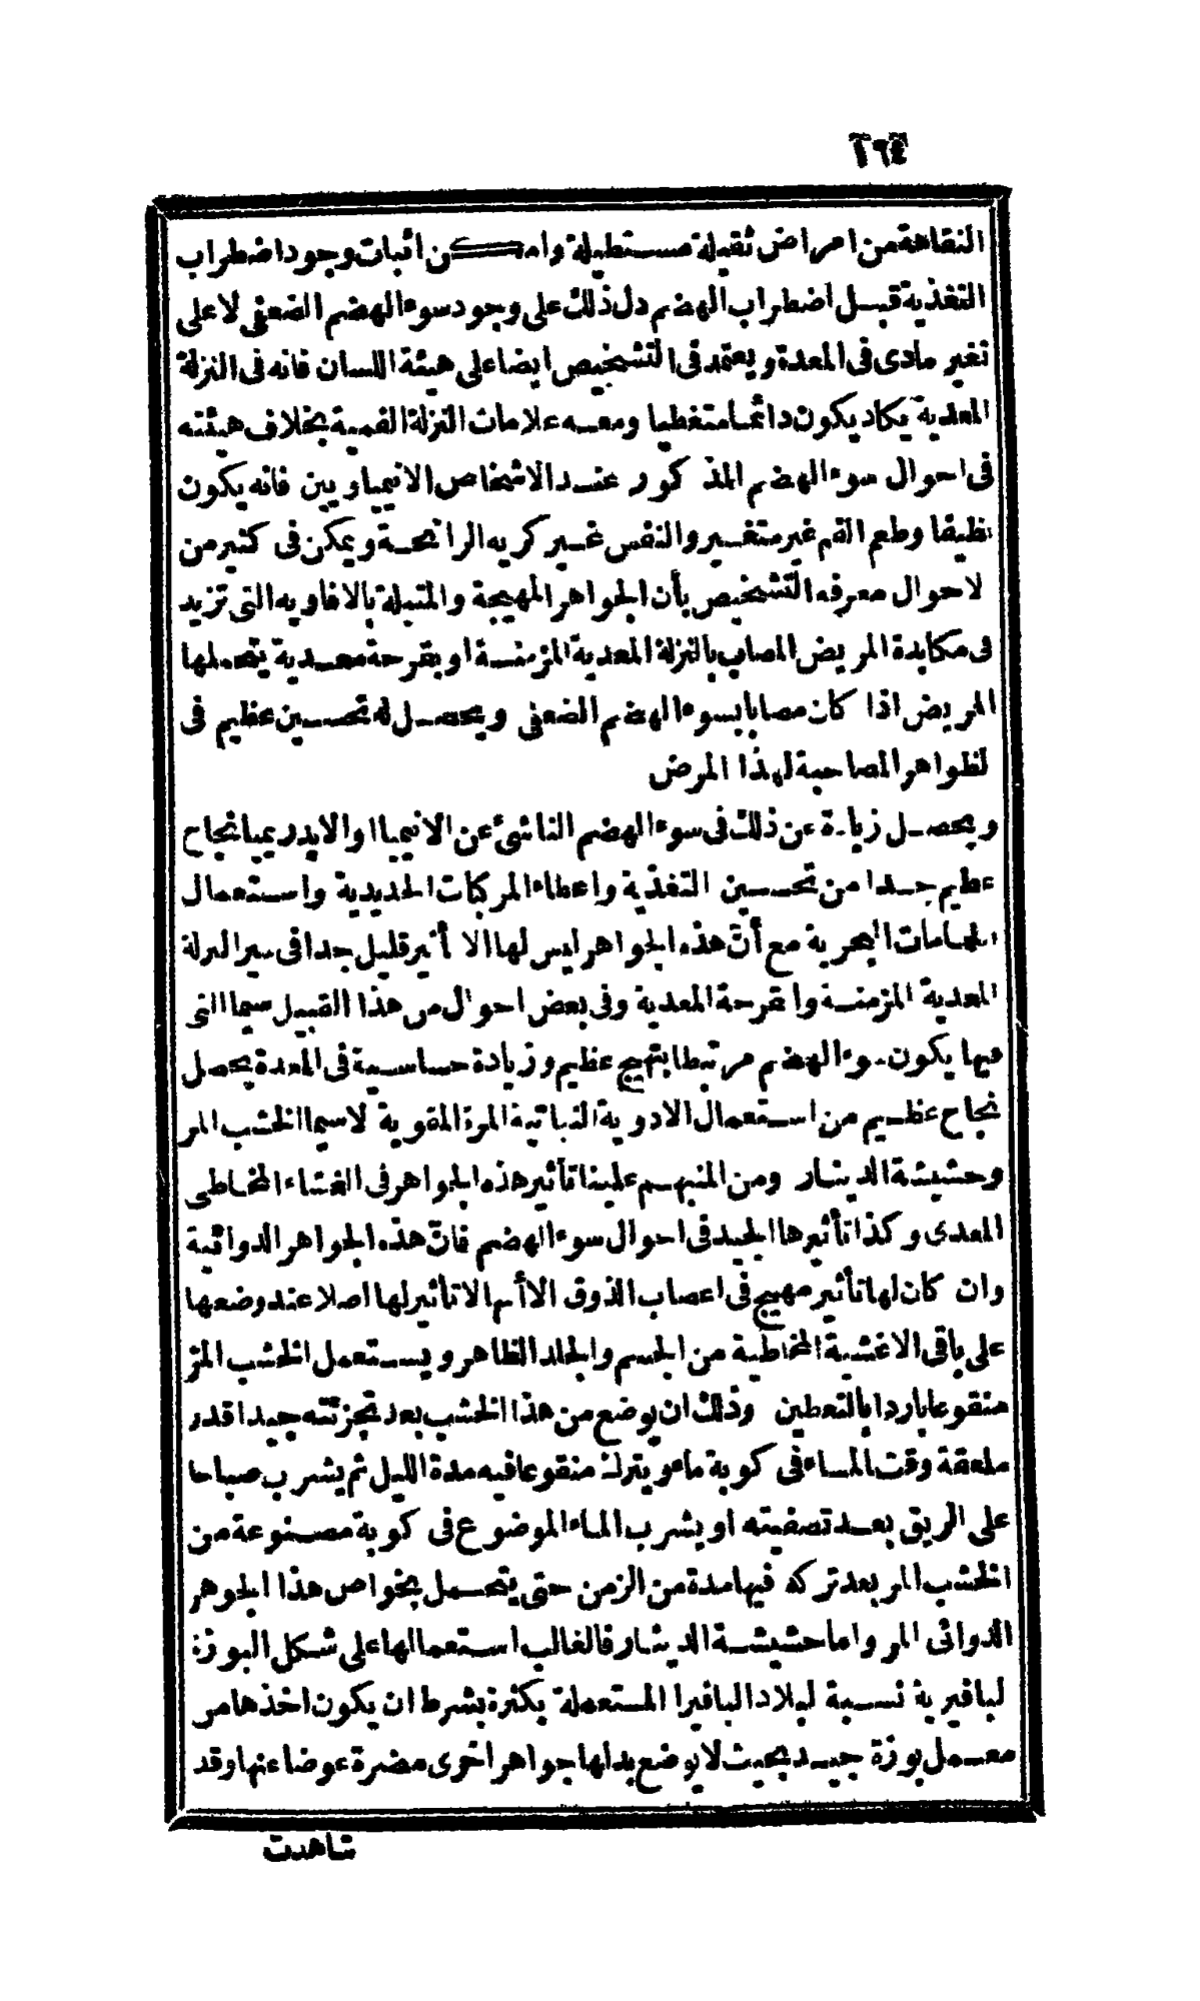 ١٦٤
النقاهة من امراض ثقيلة مستطيلة وامكن اثبات وجود اضطراب
التغذية قبل اضطراب الهضم دل ذلك على وجود سوء الهضم الضعفى لا على
تغير مادى فى المعدة ويعتمد فى التشخيص ايضا على هيئة اللسان فانه فى النزلة
المعدية يكاد يكون دائما متغطيا ومعه علامات النزلة الفمية بخلاف هيئته
فى احوال سوء الهضم المذكور عند الاشخاص الانيمياويين فانه يكون
نظيفا وطعم الفم غير متغير والنفس غير كريه الرائحة ويمكن فى كثير من
لاحوال معرفة التشخيص بأن الجواهر المهيجة والمتبلة بالافاويه التى تزيد
فى مكابدة المريض المصاب بالنزلة المعدية المزمنة او بقرحة معدية يتحملها
المريض اذا كان مصابا بسوء الهضم الضعفى ويحصل له تحسين عظيم فى
لظواهر المصاحبة لهذا المرض
ويحصل زيادة عن ذلك فى سوء الهضم الناشئ عن الانيميا والايدريميا نجاح
عظيم جدا من تحسين التغذية واعطاء المركبات الحديدية واستعمال
الحمامات البحرية مع أنّ هذه الجواهر ليس لها الا تأثير قليل جدا فى سير النزلة
المعدية المزمنة والقرحة المعدية وفى بعض احوال من هذا القبيل سيما التى
فيها يكون سوء الهضم مرتبطا بتهيج عظيم وزيادة حساسية فى المعدة يحصل
نجاح عظيم من استعمال الادوية النباتية المرة المقوية لاسيما الخشب المر
وحشيشة الدينار ومن المنبهم علينا تأثير هذه الجواهر فى الغشاء المخاطى
المعدى وكذا تأثيرها الجيد فى احوال سوء الهضم فانّ هذه الجواهر الدوائية
وان كان لها تأثير مهيج فى اعصاب الذوق الا أنه لا تأثير لها اصلا عند وضعها
على باقى الاغشية المخاطية من الجسم والجلد الظاهر ويستعمل الخشب المر
منقوعا باردا بالتعطين وذلك ان يوضع من هذا الخشب بعد تجزئته جيدا قدر
ملعقة وقت المساء فى كوبة ماء ويترك منقوعا فيه مدة الليل ثم يشرب صباحا
على الريق بعد تصفيته او يشرب الماء الموضوع فى كوبة مصنوعة من
الخشب المر بعد تركه فيها مدة من الزمن حتى يتحمل بخواص هذا الجوهر
الدوائى المر واما حشيشة الدينار فالغالب استعمالها على شكل البوزة
لبافيرية نسبة لبلاد البافيرا المستعملة بكثرة بشرط ان يكون اخذها من
معمل بوزة جيد بحيث لا يوضع بدلها جواهر اخرى مضرة عوضا عنها وقد
شاهدت